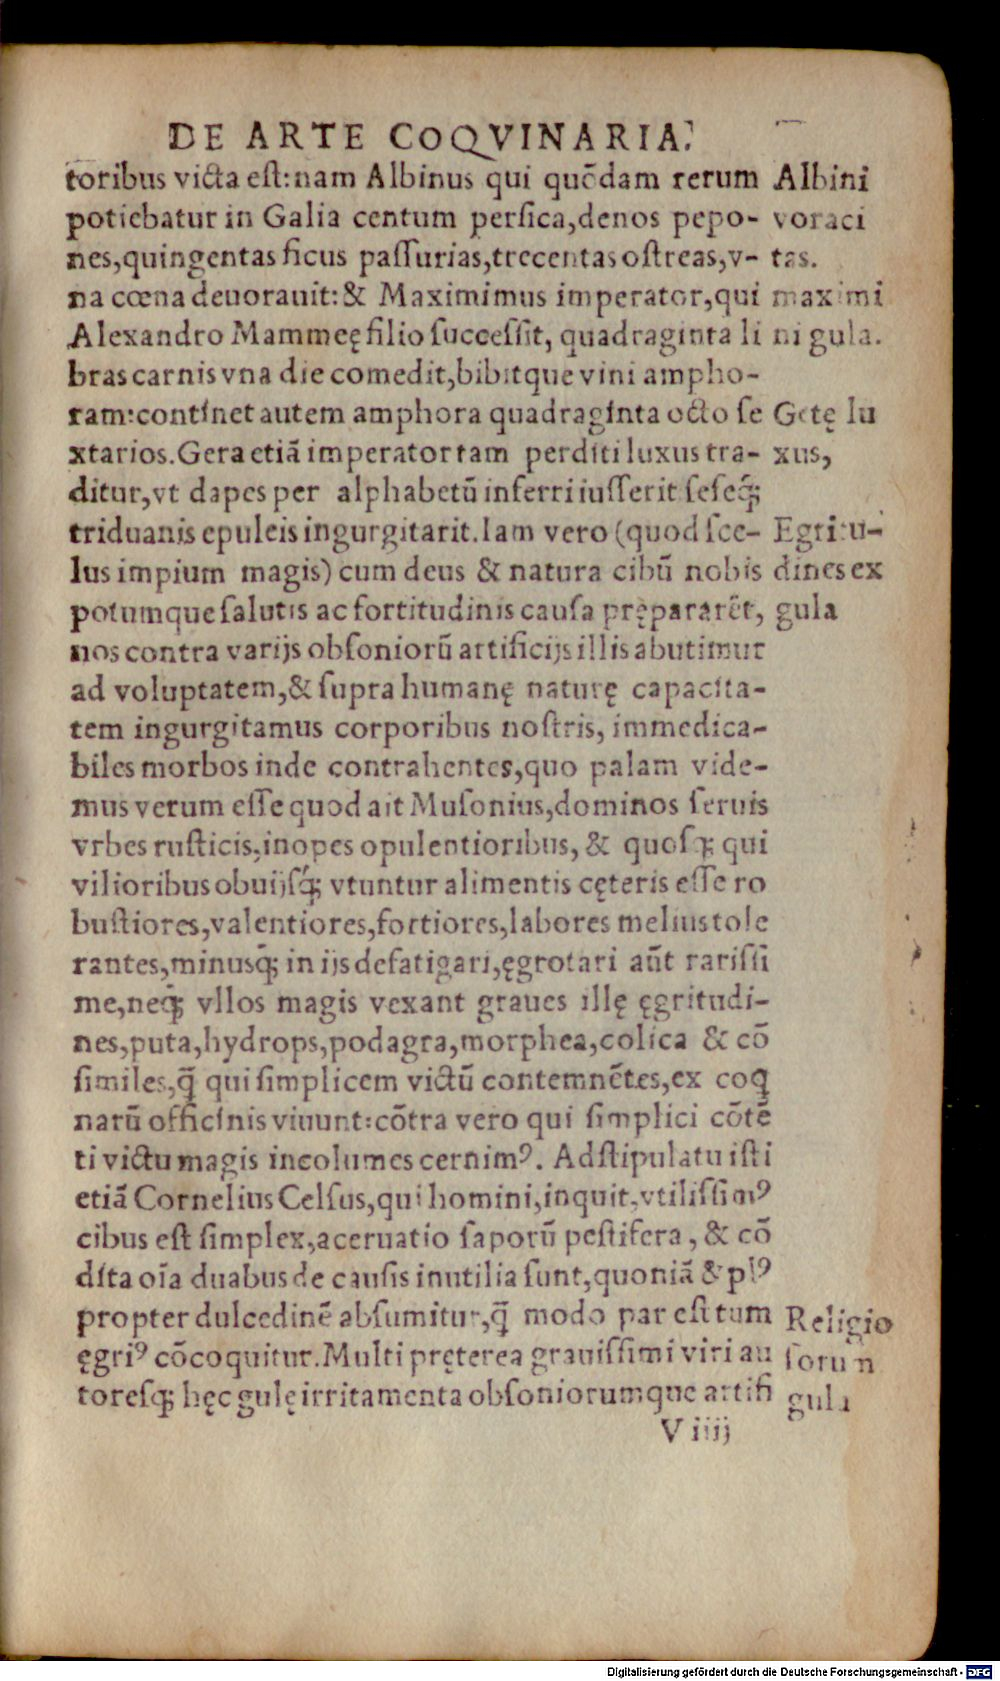 DE ARTE COQVINARIA.
toribus victa est: nam Albinus qui quōdam rerum
potiebatur in Galia centum persica, denos pepo-
nes, quingentas ficus passurias, trecentas ostreas, v-
na cœna deuorauit: & Maximimus imperator, qui
Alexandro Mammeę filio successit, quadraginta li
bras carnis vna die comedit, bibitque vini ampho-
ram: continet autem amphora quadraginta octo se
xtarios. Gera etiā imperator tam perditi luxus tra-
ditur, vt dapes per alphabetū inferri iusserit seseq́;
triduanis epuleis ingurgitarit. Iam vero (quod sce-
lus impium magis) cum deus & natura cibū nobis
potumque salutis ac fortitudinis causa prępararēt,
nos contra varijs obsoniorū artificijs illis abutimur
ad voluptatem, & supra humanę naturę capacita-
tem ingurgitamus corporibus nostris, immedica-
biles morbos inde contrahentes, quo palam vide-
mus verum esse quod ait Musonius, dominos seruis
vrbes rusticis, inopes opulentioribus, & quosq; qui
vilioribus obuijsq́; vtuntur alimentis cęteris esse ro
bustiores, valentiores, fortiores, labores melius tole
rantes, minusq́; in ijs defatigari, ęgrotari aūt rarissi
me, neq́; vllos magis vexant graues illę ęgritudi-
nes, puta, hydrops, podagra, morphea, colica & cō
similes, q̄ qui simplicem victū contemnētes, ex coq
narū officinis viuunt: cōtra vero qui simplici cōtē
ti victu magis incolumes cernimꝰ. Adstipulatu isti
etiā Cornelius Celsus, qui homini, inquit, vtilissimꝰ
cibus est simplex, aceruatio saporū pestifera, & cō
dita oīa duabus de causis inutilia sunt, quoniā & plꝰ
propter dulcedinē absumitur, q̄ modo par est tum
ęgriꝰ cōcoquitur. Multi pręterea grauissimi viri au
toresq́; hęc gulę irritamenta obsoniorumque artifi
V iiij
Albini
voraci
tas.
maximi
ni gula.
Getę lu
xus,
Egritu-
dines ex
gula
Religio
sorum
gula
Digitalisierung gefördert durch die Deutsche Forschungsgemeinschaft - DFG